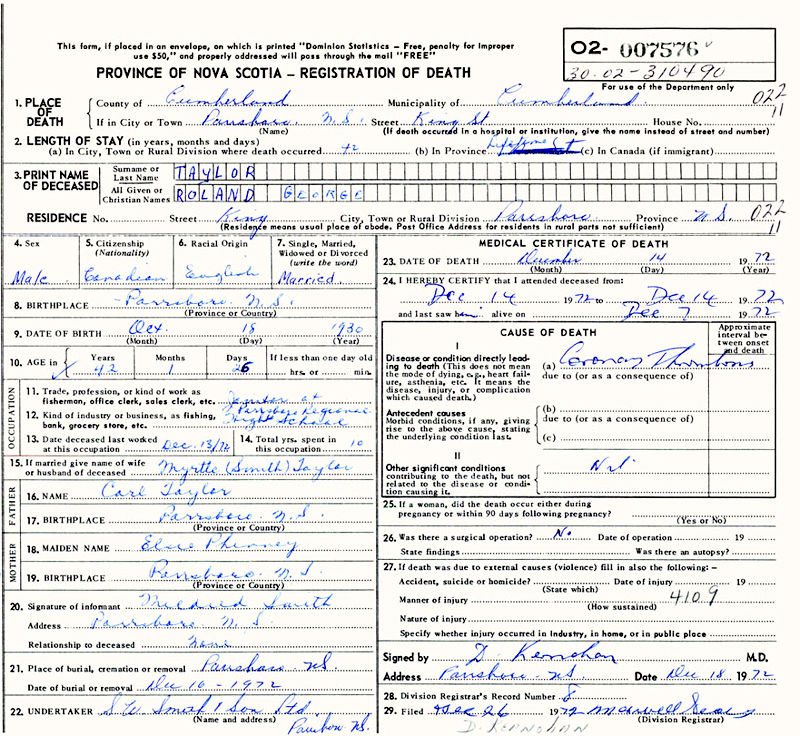 This form, if placed in an envelope, on which is printed "Dominion Statistics – Free, penalty for improper
use $50," and properly addressed will pass through the mail "FREE"
PROVINCE OF NOVA SCOTIA – REGISTRATION OF DEATH
02- 007576
30-02-310490
For use of the Department only
022
11
1. PLACE OF DEATH
County of Cumberland Municipality of Cumberland
If in City or Town Parrsboro N.S. Street King St House No.
(Name) (If death occurred in a hospital or institution, give the name instead of street and number)
2. LENGTH OF STAY (in years, months and days)
(a) In City, Town or Rural Division where death occurred 42 (b) In Province Lifetime (c) In Canada (if immigrant)
3. PRINT NAME OF DECEASED
Surname or Last Name TAYLOR
All Given or Christian Names ROLAND GEORGE
RESIDENCE No. Street King City, Town or Rural Division Parrsboro Province N.S. 022
11
(Residence means usual place of abode. Post Office Address for residents in rural parts not sufficient)
4. Sex
Male
5. Citizenship
(Nationality)
Canadian
6. Racial Origin
English
7. Single, Married,
Widowed or Divorced
(write the word)
Married
8. BIRTHPLACE Parrsboro N.S.
(Province or Country)
9. DATE OF BIRTH Oct 18 1930
(Month) (Day) (Year)
10. AGE in
Years Months Days If less than one day old
42 1 26 hrs. or min.
OCCUPATION
11. Trade, profession, or kind of work as
fisherman, office clerk, sales clerk, etc. Janitor at
12. Kind of industry or business, as fishing,
bank, grocery store, etc. Parrsboro Regional
High School
13. Date deceased last worked
at this occupation Dec. 13/72
14. Total yrs. spent in
this occupation 10
15. If married give name of wife
or husband of deceased Myrtle (Smith) Taylor
FATHER
16. NAME Carl Taylor
17. BIRTHPLACE Parrsboro N.S.
(Province or Country)
MOTHER
18. MAIDEN NAME Elsie Phinney
19. BIRTHPLACE Parrsboro N.S.
(Province or Country)
20. Signature of informant Mildred Smith
Address Parrsboro N.S.
Relationship to deceased None
21. Place of burial, cremation or removal Parrsboro N.S.
Date of burial or removal Dec 16 - 1972
22. UNDERTAKER S.W. Smith & Son Ltd
(Name and address) Parrsboro N.S.
MEDICAL CERTIFICATE OF DEATH
23. DATE OF DEATH December 14 1972
(Month) (Day) (Year)
24. I HEREBY CERTIFY that I attended deceased from:
Dec 14 1972 to Dec 14 1972
and last saw him alive on Dec 7 1972
CAUSE OF DEATH
Approximate
interval be-
tween onset
and death
I
Disease or condition directly lead-
ing to death (This does not mean
the mode of dying, e.g., heart fail-
ure, asthenia, etc. It means the
disease, injury, or complication
which caused death.)
(a) Coronary Thrombosis
due to (or as a consequence of)
Antecedent causes
Morbid conditions, if any, giving
rise to the above cause, stating
the underlying condition last.
(b)
due to (or as a consequence of)
(c)
II
Other significant conditions
contributing to the death, but not
related to the disease or condi-
tion causing it.
Nil
25. If a woman, did the death occur either during
pregnancy or within 90 days following pregnancy?
(Yes or No)
26. Was there a surgical operation? No Date of operation 19
State findings Was there an autopsy?
27. If death was due to external causes (violence) fill in also the following: –
Accident, suicide or homicide? Date of injury 19
(State which)
Manner of injury 4109
(How sustained)
Nature of injury
Specify whether injury occurred in Industry, in home, or in public place
Signed by D. Kernohan M.D.
Address Parrsboro N.S. Date Dec 18 1972
28. Division Registrar's Record Number 8
29. Filed Dec 26 1972 Maxwell
(Division Registrar)
D. KERNOHAN